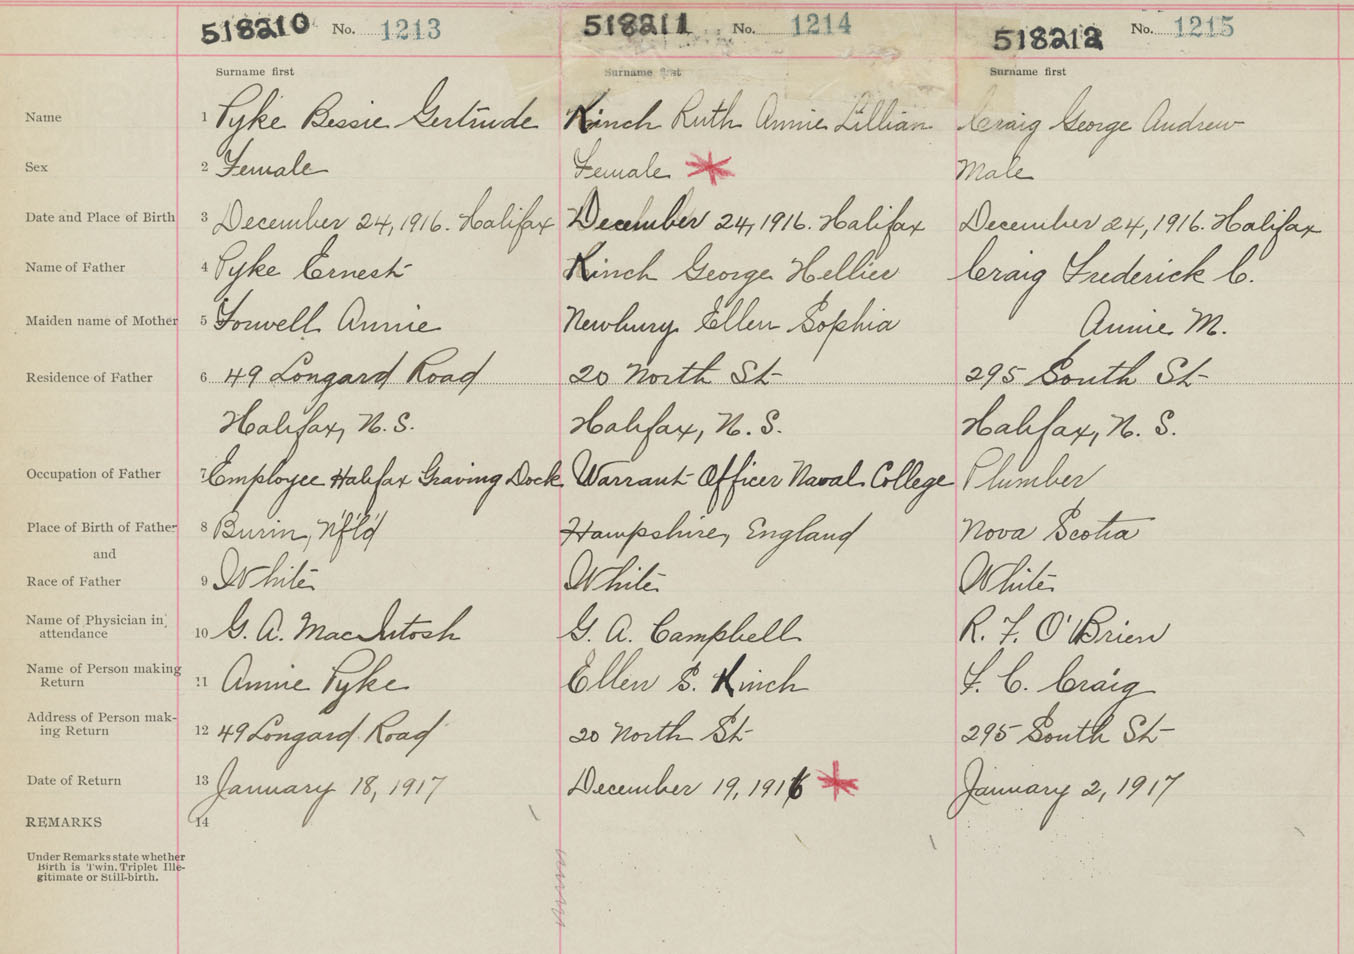 518210 No. 1213 518211 No. 1214 518212 No. 1215
Surname first Surname first Surname first
Name 1 Pyke Bessie Gertrude Kinch Ruth Annie Lillian Craig George Andrew
Sex 2 Female Female Male
Date and Place of Birth 3 December 24, 1916. Halifax December 24, 1916. Halifax December 24, 1916. Halifax
Name of Father 4 Pyke Ernest Kinch George Hellier Craig Frederick C.
Maiden name of Mother 5 Annie Newbury Ellen Sophia Annie M.
Residence of Father 6 49 Longard Road 20 North St 295 South St
Halifax, N. S. Halifax, N. S. Halifax, N. S.
Occupation of Father 7 Employee Halifax Graving Dock Warrant Officer Naval College Plumber
Place of Birth of Father 8 Burin, N'f'l'd Hampshire, England Nova Scotia
and
Race of Father 9 White White White
Name of Physician in
attendance 10 G. A. MacIntosh G. A. Campbell R. F. O'Brien
Name of Person making
Return 11 Annie Pyke Ellen S. Kinch F. C. Craig
Address of Person mak-
ing Return 12 49 Longard Road 20 North St 295 South St
Date of Return 13 January 18, 1917 December 19, 1916 January 2, 1917
REMARKS 14
Under Remarks state whether
Birth is Twin, Triplet Ille-
gitimate or Still-birth.